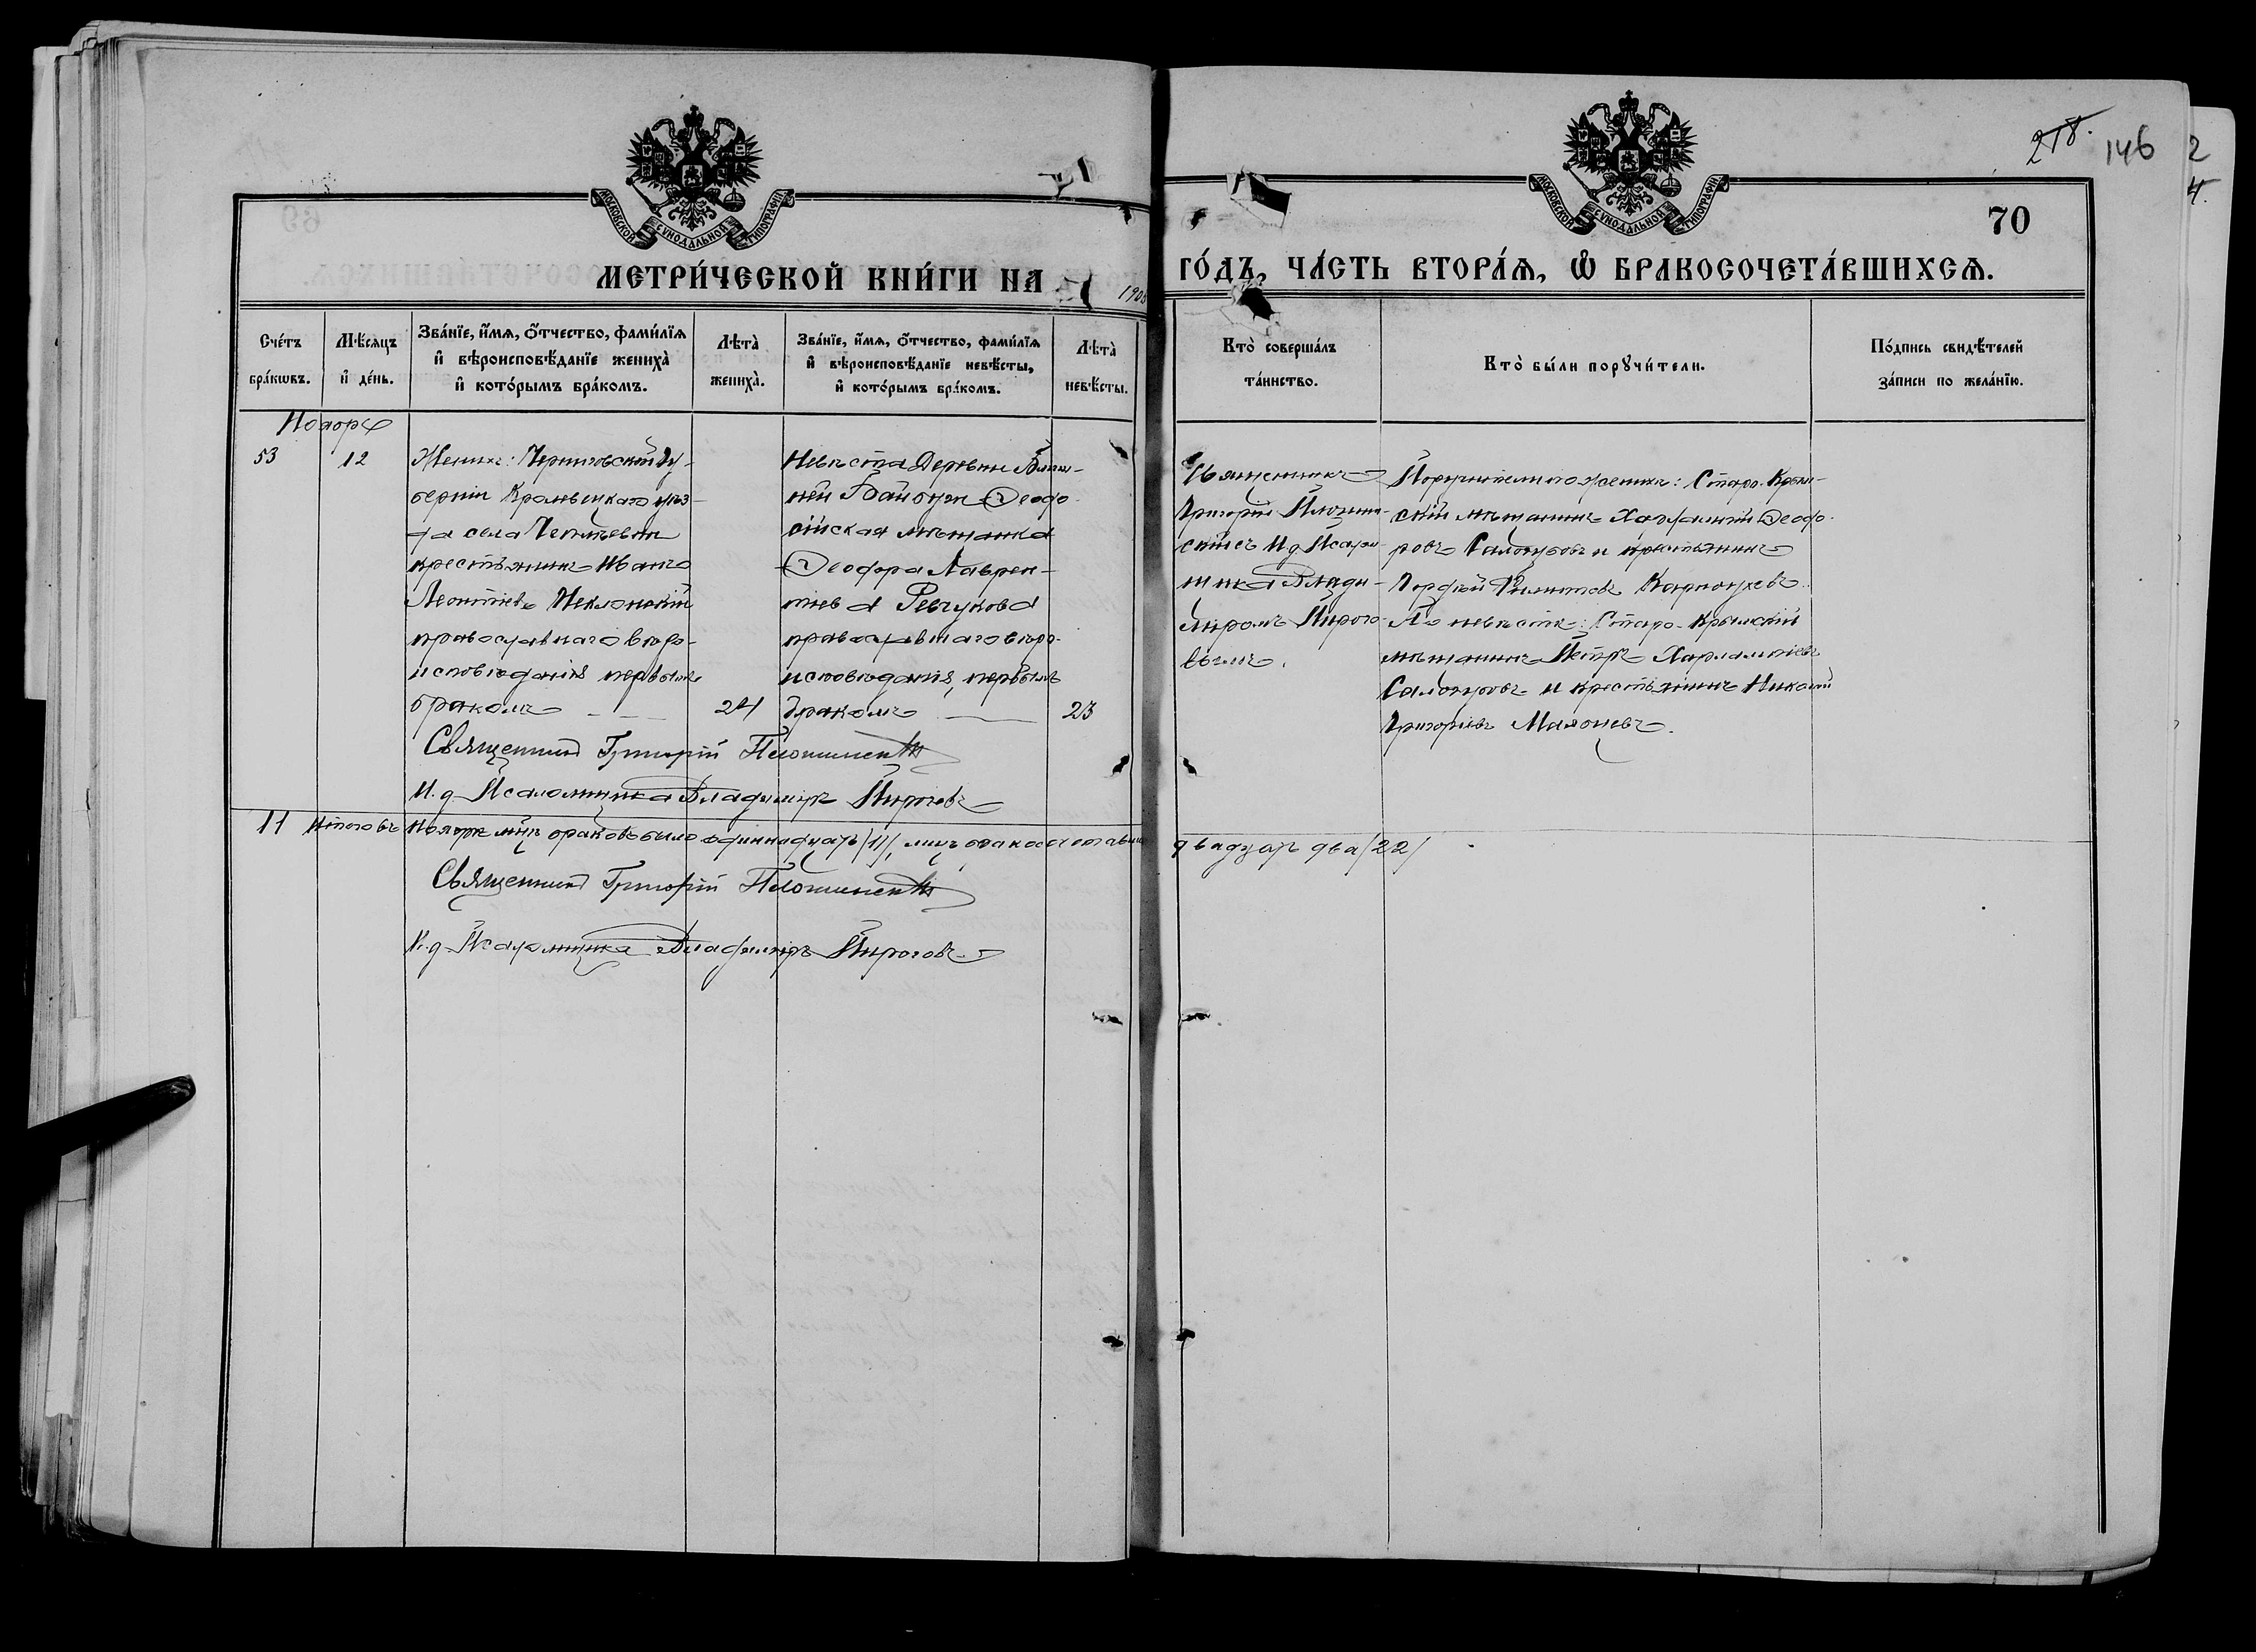 218. 146
2
4.
МОСКОВСКОЙ СѴНОДАЛЬНОЙ ТИПОГРАФІИ
МОСКОВСКОЙ СѴНОДАЛЬНОЙ ТИПОГРАФІИ
70
МЕТРИ́ЧЕСКОЙ КНИ́ГИ НА 1908 ГО́ДЪ, ЧА́СТЬ ВТОРА́Ѧ, Ѽ БРАКОСОЧЕТА́ВШИХСѦ.
Сче́тъ бра́кѡвъ.
Мѣ́сѧцъ и҆ де́нь.
Зва́нїе, и҆́мѧ, ѻ҆́тчество, фами́лїѧ и҆ вѣроисповѣ́данїе жениха̀ и҆ кото́рымъ бра́комъ.
Лѣта̀ жениха̀.
Зва́нїе, и҆́мѧ, ѻ҆́тчество, фами́лїѧ и҆ вѣроисповѣ́данїе невѣ́сты, и҆ кото́рымъ бра́комъ.
Лѣта̀ невѣ́сты.
Кто̀ соверша́лъ та́инство.
Кто̀ бы́ли порꙋчи́тели.
По́дпись свидѣ́телей за́писи по жела́нїю.
Ноябрь
53
12
Женихъ: Черниговской Гу-
берніи Кролевецкаго уѣз-
да села
крестьянинъ Иванъ
Леонтіевъ
православнаго вѣро-
исповѣданія первымъ
бракомъ
24
Невѣста Деревни Ближ-
ней Байбуги Ѳеодо-
сійская мѣщанка
Ѳеодора Лаврен-
тіева Ревчукова
православнаго вѣро-
исповѣданія, первымъ
бракомъ
23
Священникъ
Григорій
И.д. Псалом-
щика Влади-
міромъ Пирого-
вымъ.
Поручители по женихѣ: Старо-Крым-
скій мѣщанинъ Харлампій Ѳеодо-
ровъ и крестьянинъ
Филиповъ
По невѣстѣ: Старо-Крымскій
мѣщанинъ Петръ Харлампіевъ
и крестьянинъ Николай
Григоріевъ
Священникъ Григорій
И.д. Псаломщика Владиміръ Пироговъ
11 Итого въ Ноябрѣ мцѣ браковъ было одиннадцать /11/, лицъ бракосочетавших двадцать два /22/
Священникъ Григорій
И.д. Псаломщика Владиміръ Пироговъ